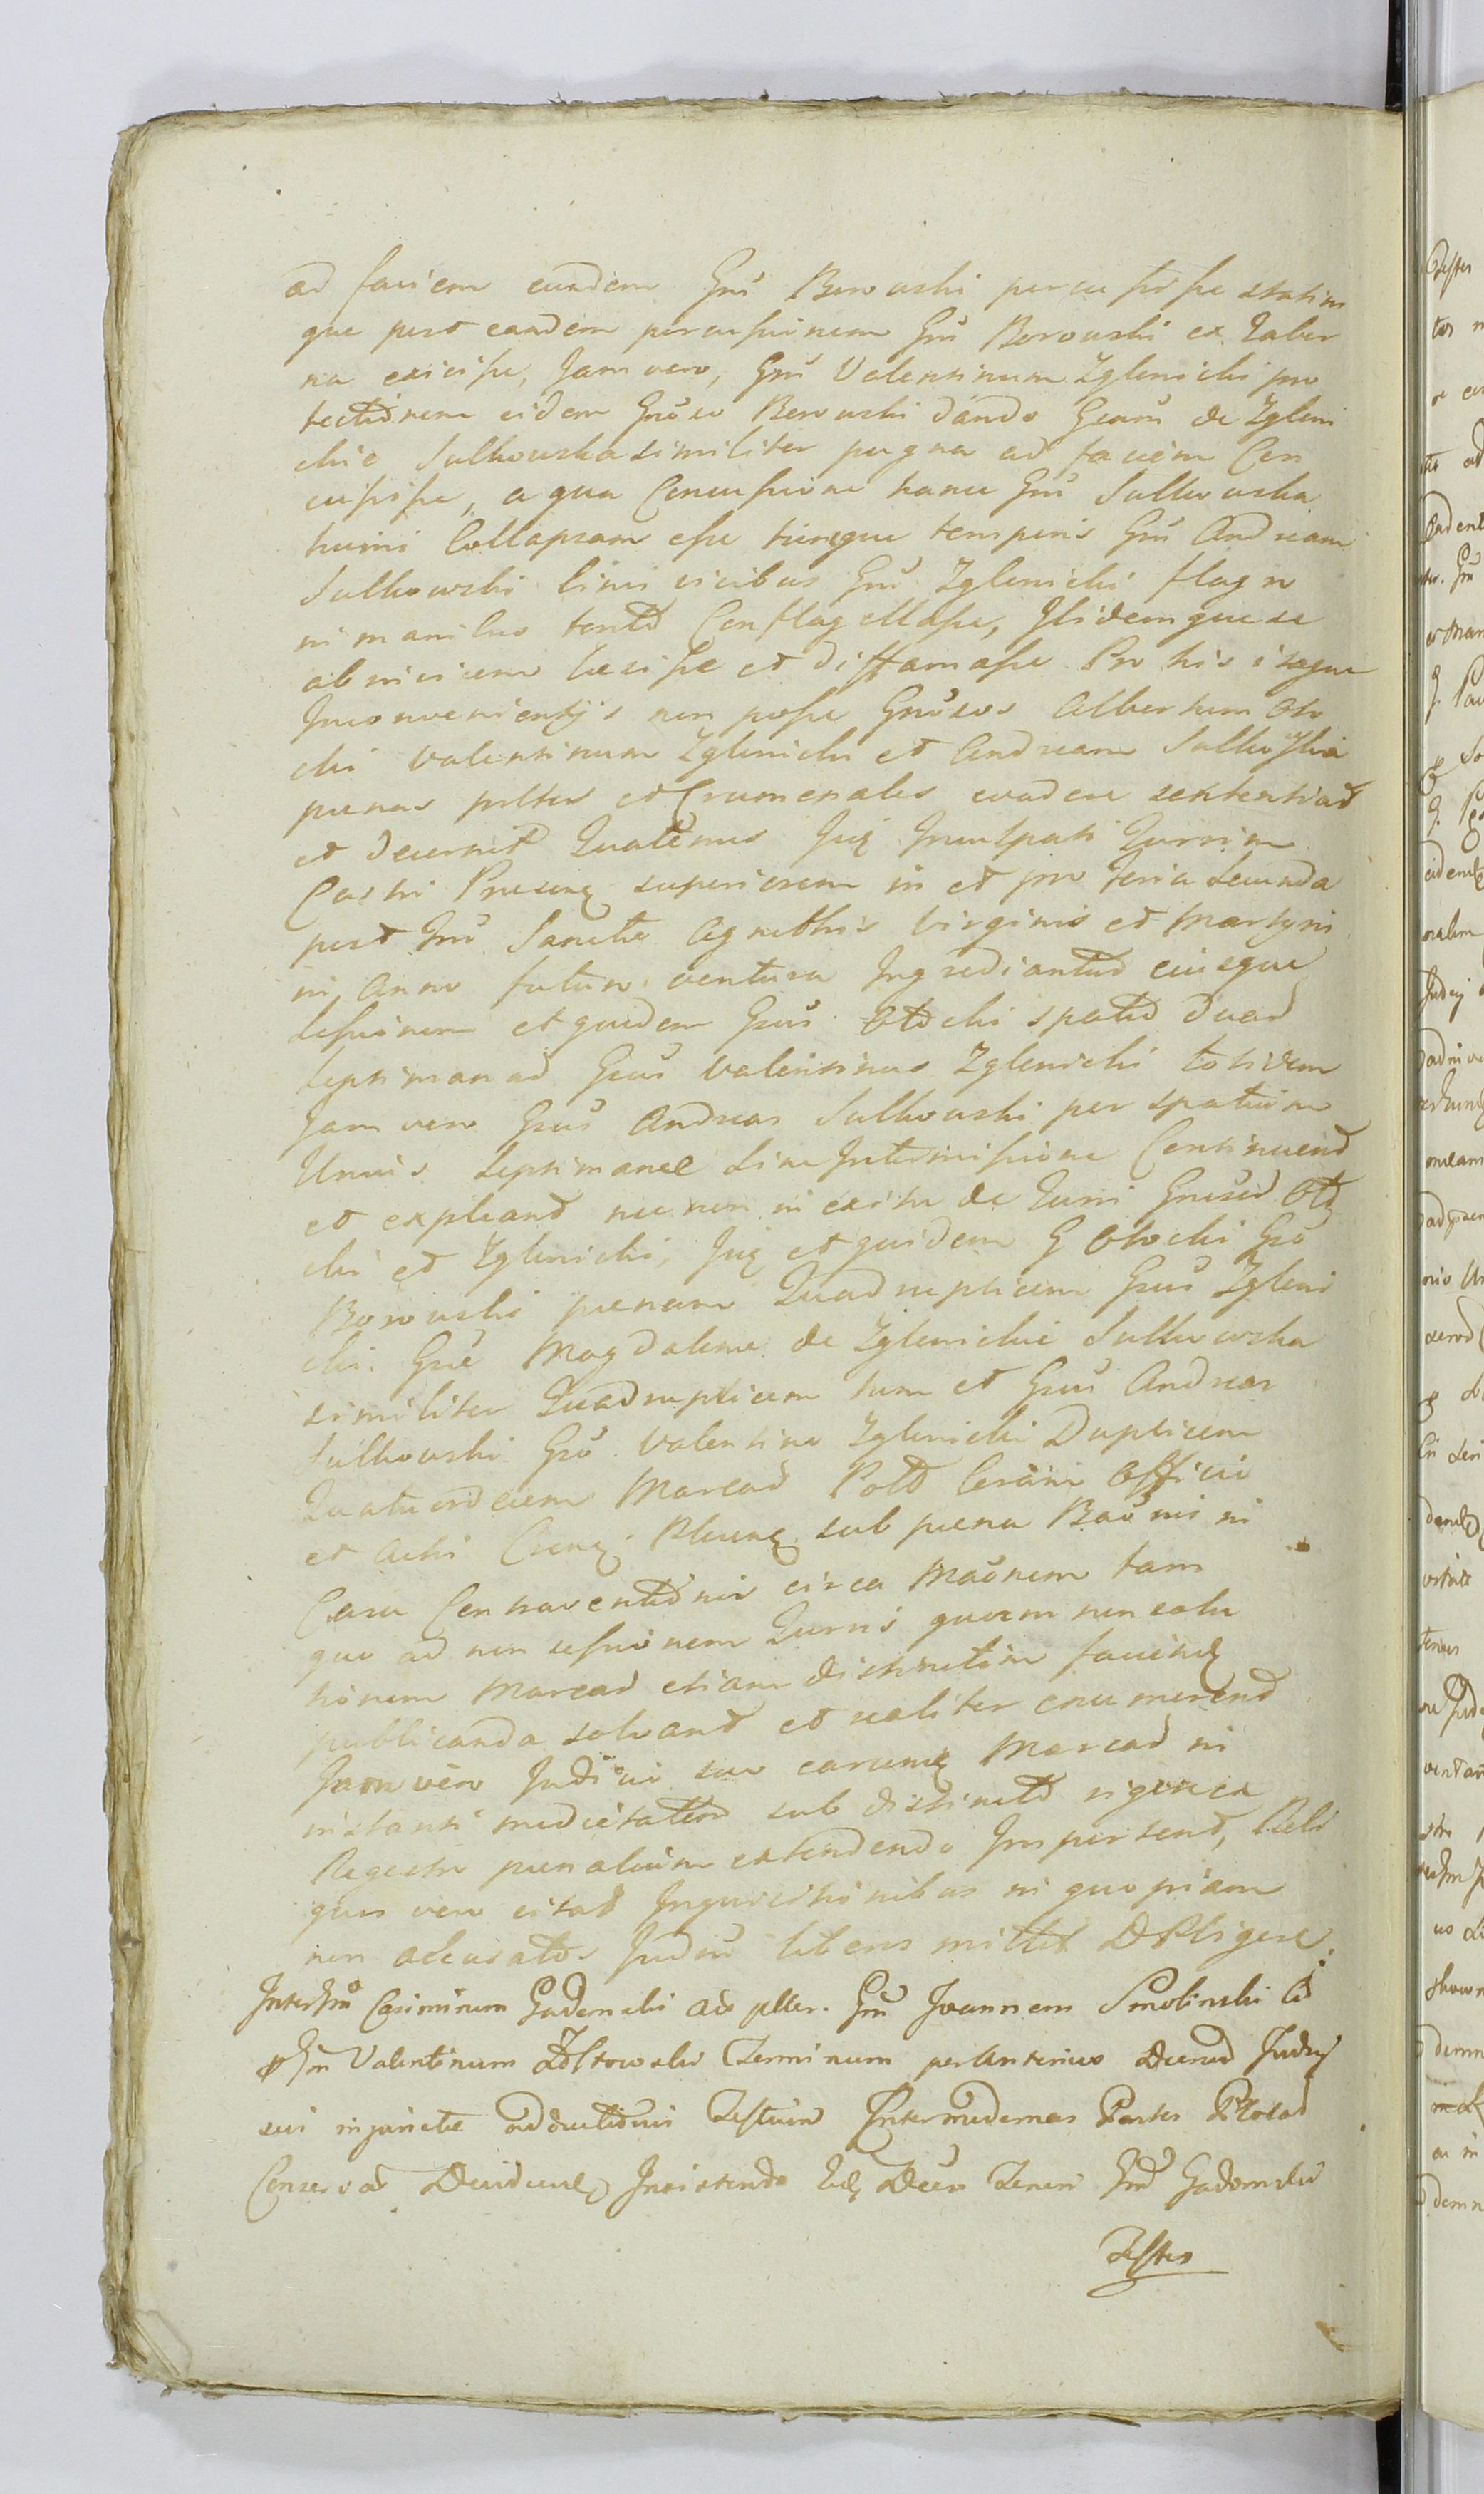 ad faciem eundem Gnū Borowski percussisse statim
que post eandem percussionem Gnū Borowski ex Taber
na exicisse, Jam vero, Gnū Valentinum Zglenicki pro
tectiōnem eidem Gnōso Borowski dando Gnam de Zgleni
ckie Sulkowska similiter pugna ad faciem Con
cussisse, a qua Concussione hanc Gnū Sulkowska
humi Collapsam esse tuncque temporis Gnū Andream
Sulkowski binis vicibus Gnū Zglenicki flagro
in manibus tento Conflagellasse, Ibidemque se
ab invicem laesisse et diffamasse Pro his itaque
Inconvenientijs non posse Gnōsos Albertum Oto
cki Valentinum Zglenicki et Andream Sulkowski
paenas pltes et Crumenales evadere sententiad
et decernit Quatenus Inculpati Turrim
Castri superiorem in et pro feria secunda
post Sanctae Agnethis Virginis et Martyris
in Anno futuro ventura Ingrediantur eiusque
sessionem et quidem Gnus Otocki spatio duad
septimanad Gnus Valentinus Zglenicki totidem
Jam vero Gnus Andreas Sulkowski per spatium
Unius septimanae sine Intermissione Continuend
et expleant nec non in exitu de Turri Gnosus Oto
cki et Zglenicki, et quidem G Otocki Gnō
Borowski paenam Quadruplicem Gnus Zgleni
cki Gnae Magdalenae de Zglenickie Sulkowska
similiter Quadruplicem tum et Gnus Andreas
Sulkowski Gnō Valentino Zglenicki Duplicem
Quatuordecim Marcad Pold Coram Officio
et Actis sub paena Bannī in
Casu Contraventiōnis circa Maōnem tam
quo ad non sessionem Turris quam non solu
tionem Marcad etiam distinctim
publicanda solvant et realiter enumerent
Jam vero Judicio suo earumq Marcad in
instanti medietatem sub distincto rigore ex
Regestro paenalium extendendo Impertend, Reli
quos vero citat Inquisitionibus in quopiam
non accusatos Judm liberos mittit DPligere
Inter Gnū Casimirum Gadomski Ad plter. Gnū Joannem Smolinski
Gnū Valentinum Żółtowski Terminum per Anterius Decrud Judij
sui injunctae adductiōnis Testium Inter modernas Partes
Conservad Insistendo Decro Teneri Gnd Gadomski
Testes